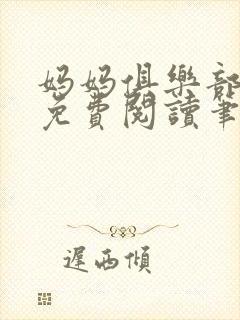 妈妈俱樂部
免費閱讀筆
遲西傾